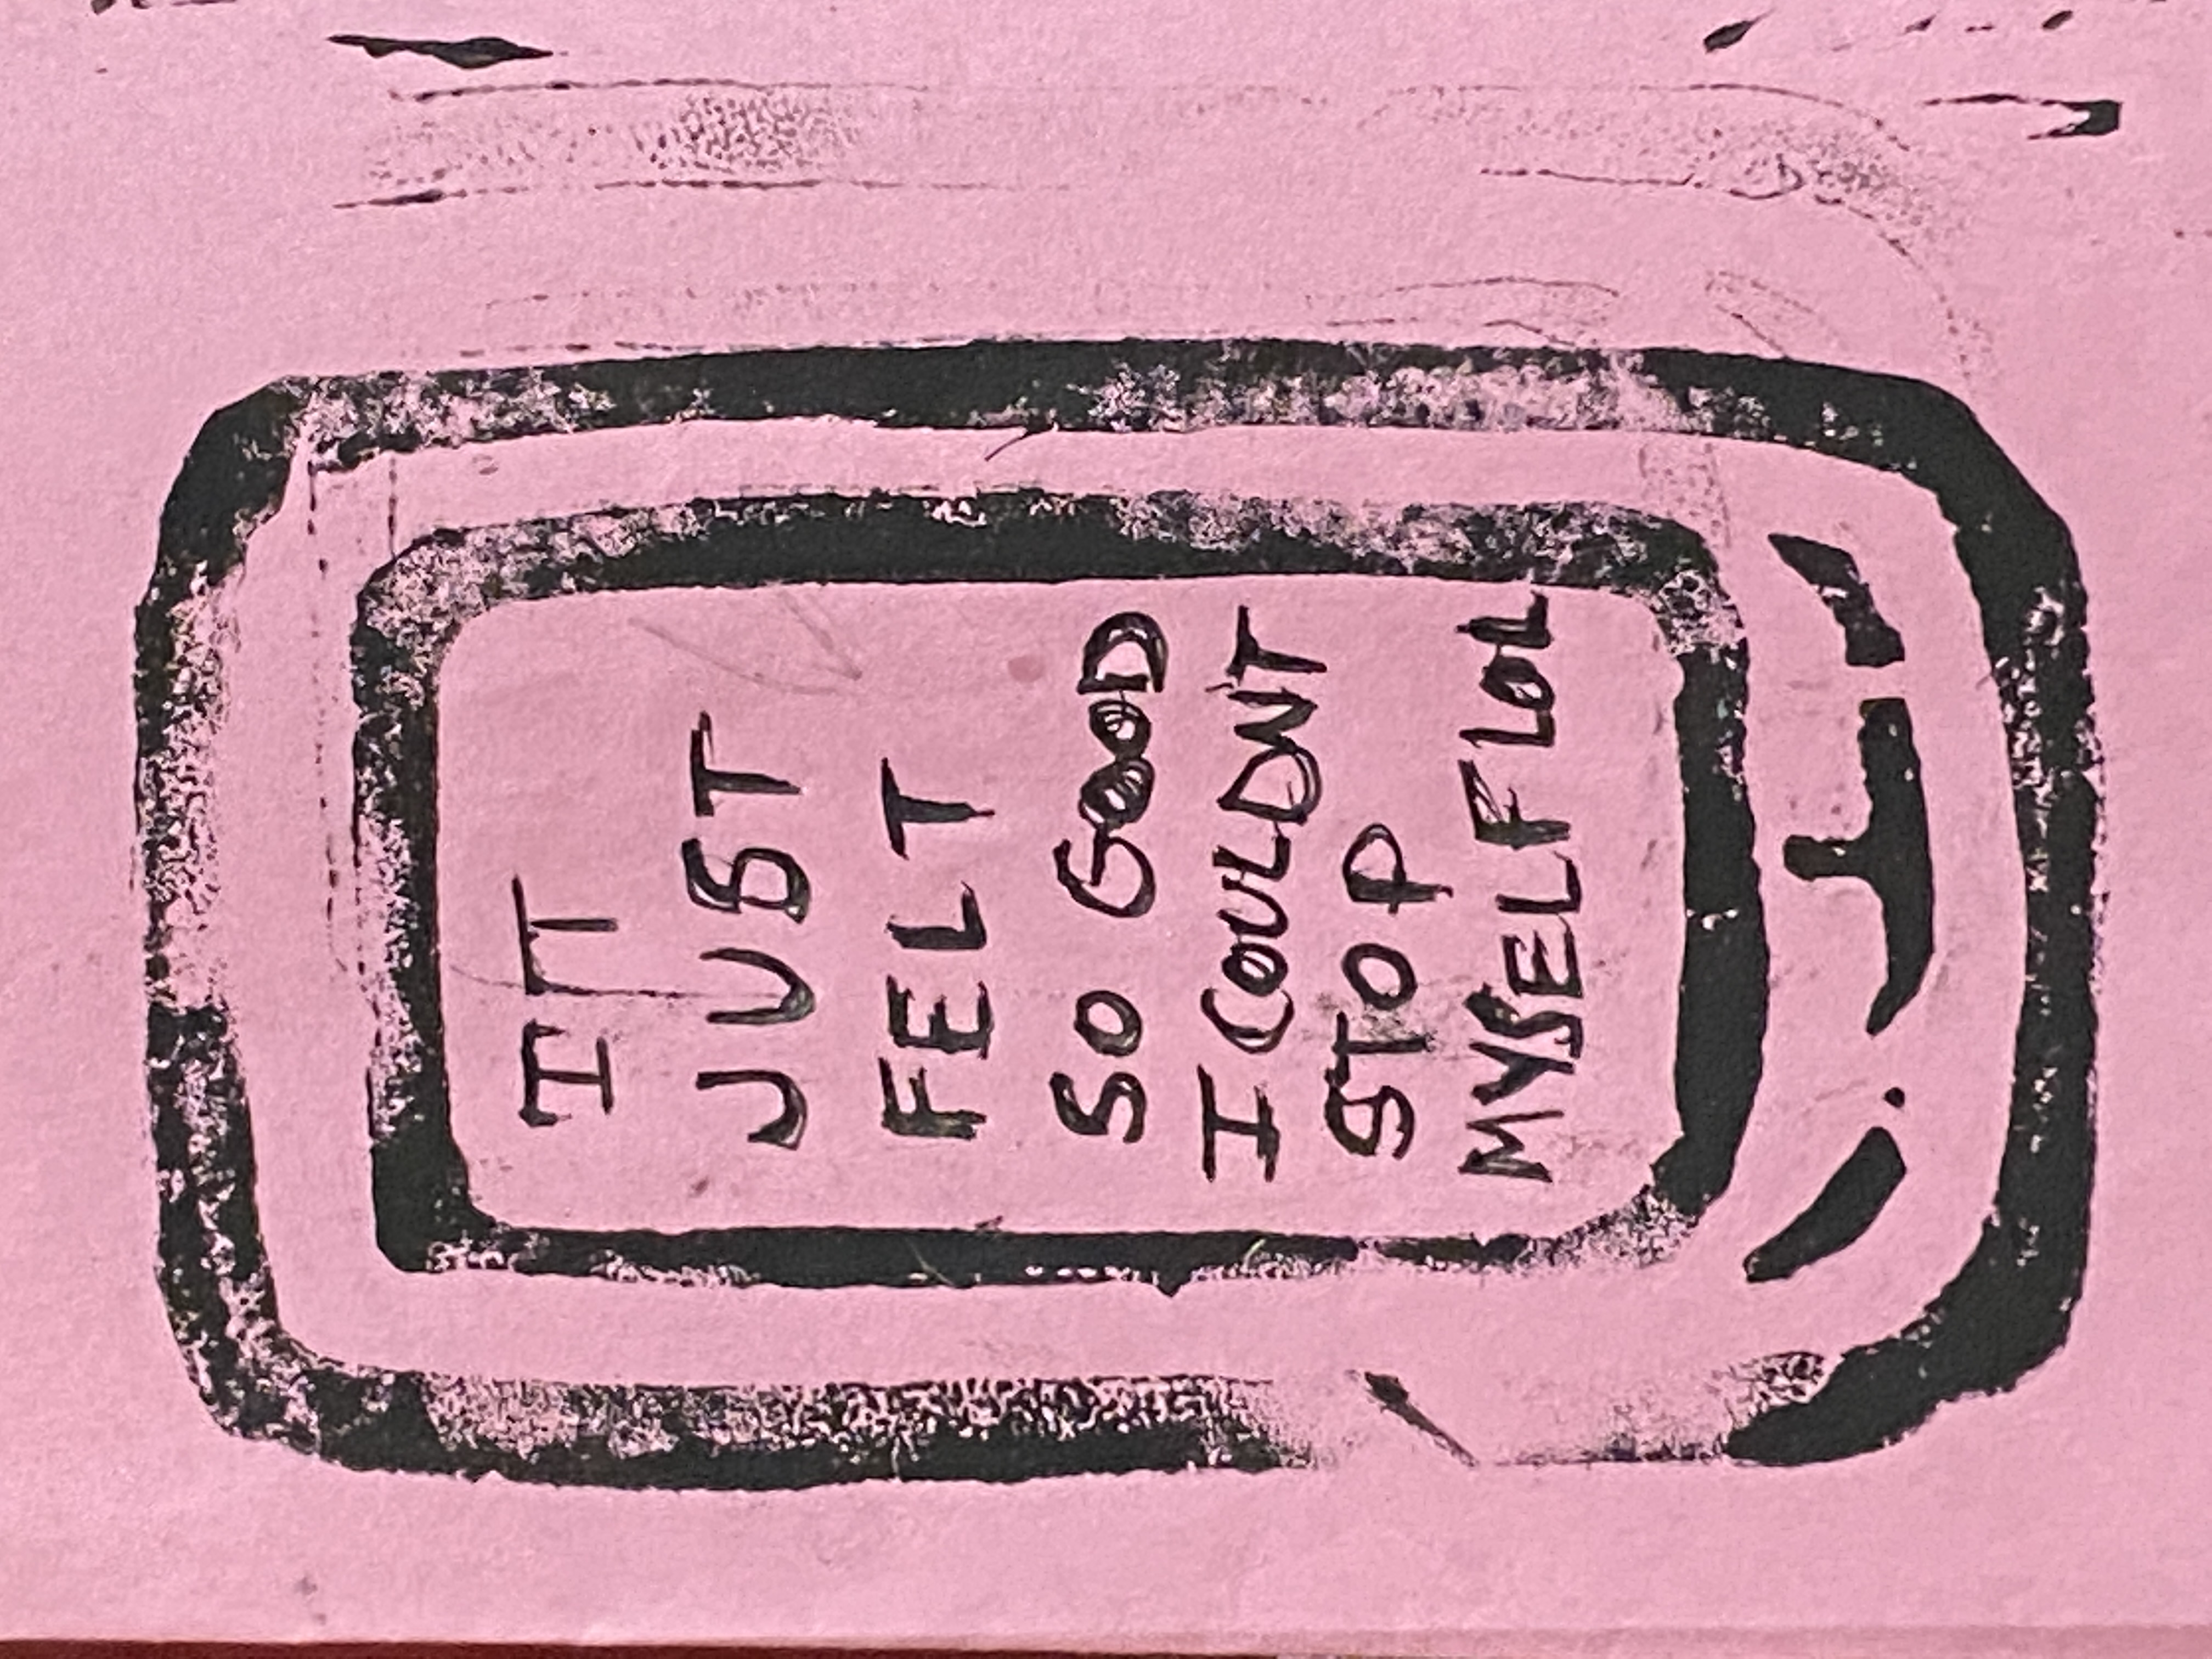 IT
JUST
FELT
SO GOOD
I COULDN'T
STOP
MYSELF LOL